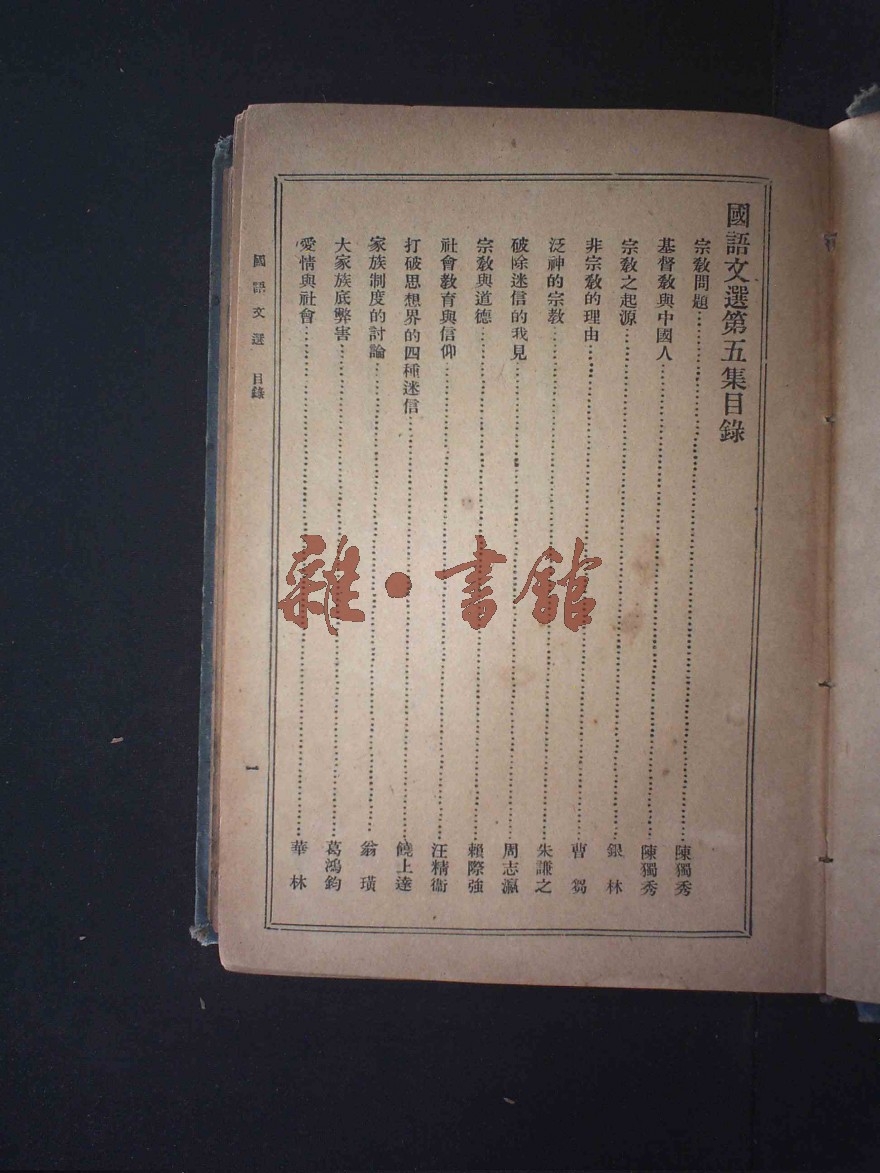 國語文選第五集目錄
宗教問題……陳獨秀
基督教與中國人……陳獨秀
宗教之起源……銀林
非宗教的理由……曹芻
泛神的宗教……朱謙之
破除迷信的我見……周志瀛
宗教與道德……賴際強
社會教育與信仰……汪精衞
打破思想界的四種迷信……饒上達
家族制度的討論……翁璜
大家族底弊害……葛鴻鈞
愛情與社會……華林
國語文選 目錄
一
雜·書館